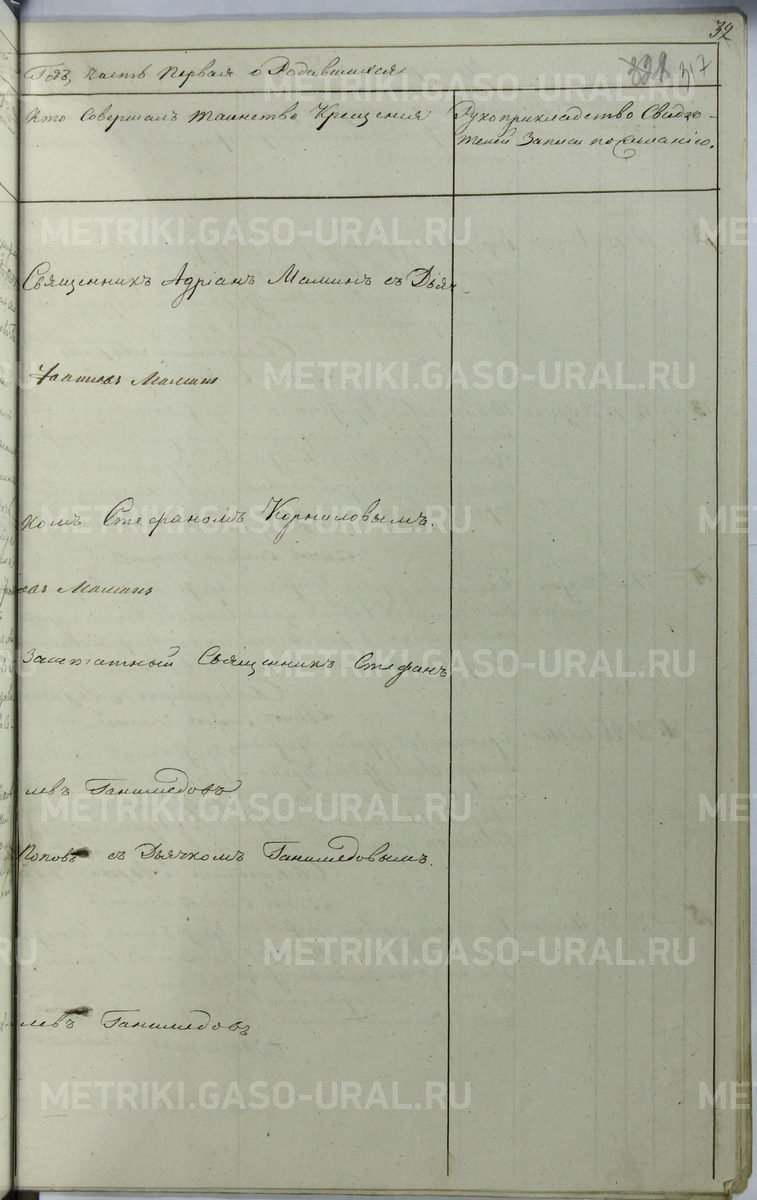 32
Годъ, часть Первая о Родившихся
317
Кто совершалъ таинство Крещенія
Рукоприкладство Свидѣ-
телей Записи по желанію.
METRIKI.GASO-URAL.RU
Священникъ Адріанъ Маминъ съ Дьяч-
METRIKI.GASO-URAL.RU
Маминъ
комъ Стефаномъ Корниловымъ.
METRIKI.GASO-URAL.RU
Маминъ
Заштатный Священникъ Стефанъ
METRIKI.GASO-URAL.RU
левъ Ганимедовъ
METRIKI.GASO-URAL.RU
Поповъ съ Дьячкомъ Ганимедовымъ.
METRIKI.GASO-URAL.RU
левъ Ганимедовъ
METRIKI.GASO-URAL.RU